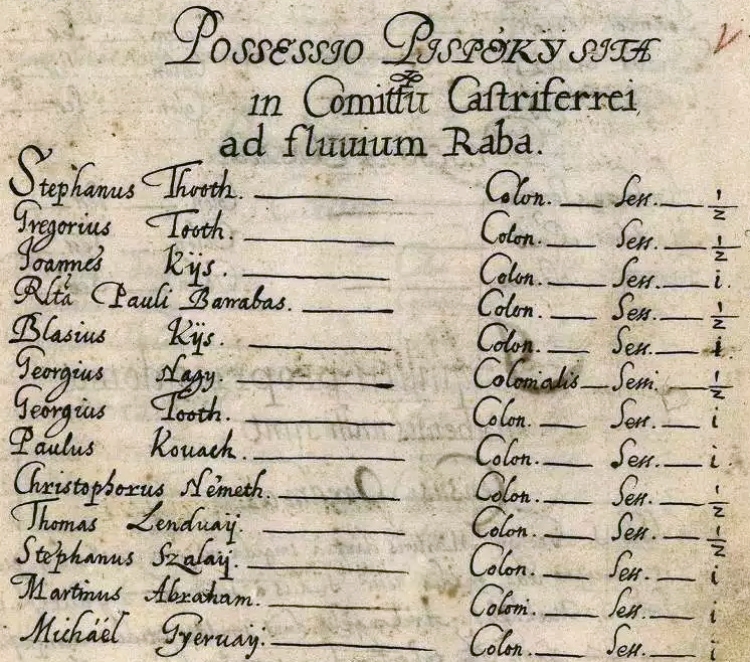 POSSESSIO PISPÖKŸ SITA
in Comittũ Castriferrei
ad fluuium Raba.
Stephanus Thooth. Colon. Sess. 1/2
Gregorius Tooth. Colon. Sess. 1/2
Joannes Kÿs. Colon. Sess. i.
Rltą Pauli Barrabas. Colon. Sess. 1/2
Blasius Kÿs. Colon. Sess. i
Georgius Nagy. Colonialis Sessi. 1/2
Georgius Tooth. Colon. Sess. i
Paulus Kouach. Colon. Sess. i.
Christophorus Németh. Colon. Sess. 1/2
Thomas Lenduaÿ. Colon. Sess. 1/2
Stephanus Szalaÿ. Colon. Sess. i
Martinus Abraham. Coloni. Sess. i
Micháël Gÿeruaÿ. Colon. Sess. i